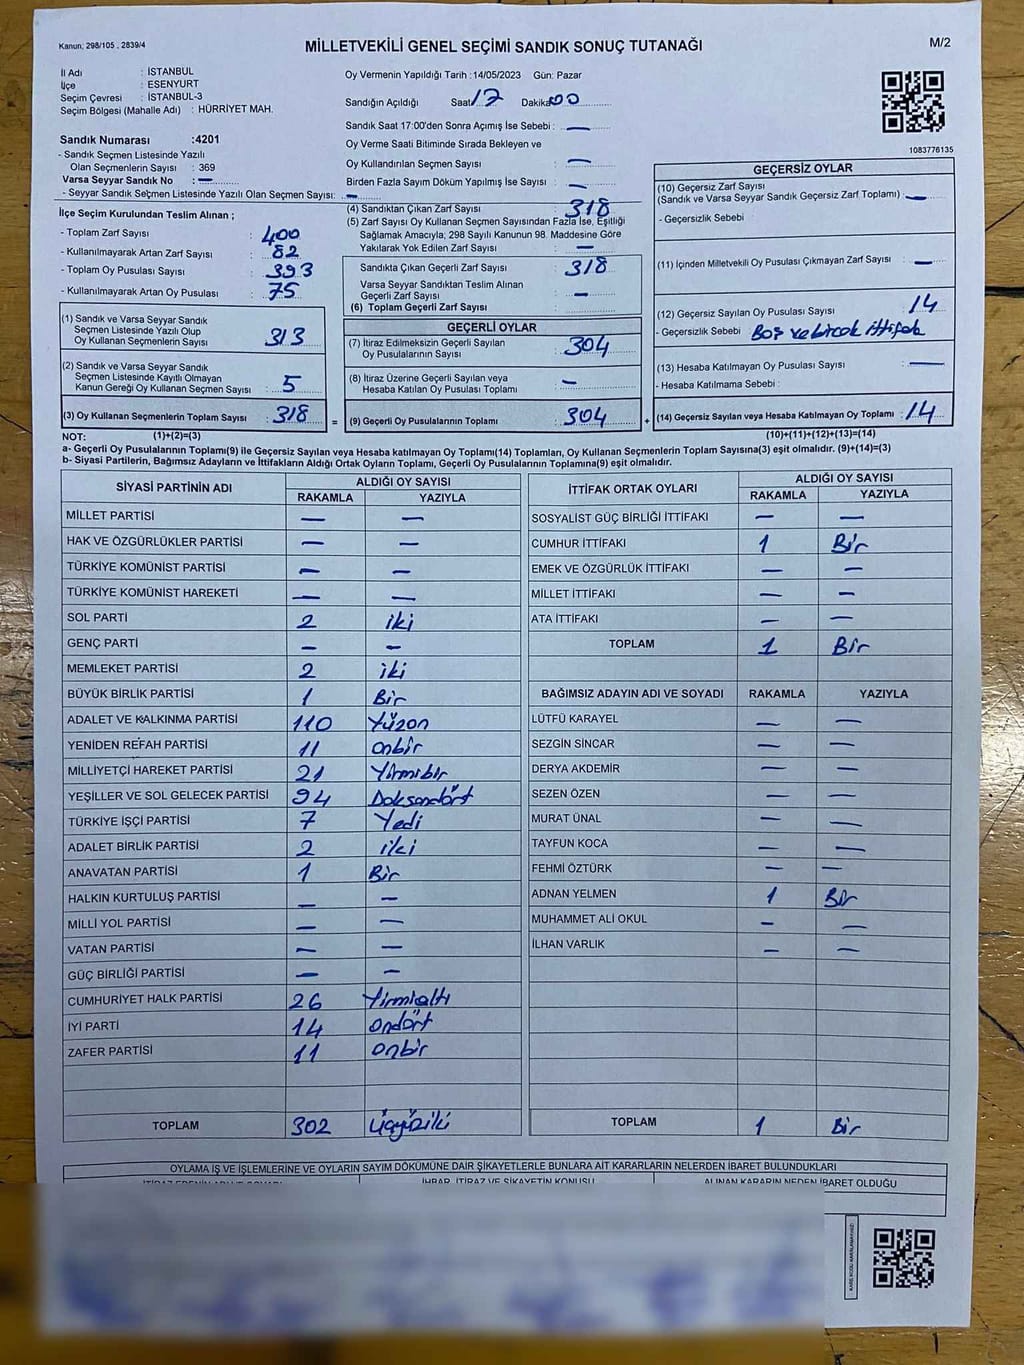 Kanun; 298/105 , 2839/4
MİLLETVEKİLİ GENEL SEÇİMİ SANDIK SONUÇ TUTANAĞI
M/2
İl Adı : İSTANBUL
İlçe : ESENYURT
Seçim Çevresi : İSTANBUL-3
Seçim Bölgesi (Mahalle Adı) : HÜRRİYET MAH.
Sandık Numarası :4201
- Sandık Seçmen Listesinde Yazılı
Olan Seçmenlerin Sayısı : 369
Varsa Seyyar Sandık No : —
- Seyyar Sandık Seçmen Listesinde Yazılı Olan Seçmen Sayısı: —
İlçe Seçim Kurulundan Teslim Alınan ;
- Toplam Zarf Sayısı : 400
- Kullanılmayarak Artan Zarf Sayısı : 82
- Toplam Oy Pusulası Sayısı : 393
- Kullanılmayarak Artan Oy Pusulası : 75
(1) Sandık ve Varsa Seyyar Sandık
Seçmen Listesinde Yazılı Olup
Oy Kullanan Seçmenlerin Sayısı : 313
(2) Sandık ve Varsa Seyyar Sandık
Seçmen Listesinde Kayıtlı Olmayan
Kanun Gereği Oy Kullanan Seçmen Sayısı : 5
(3) Oy Kullanan Seçmenlerin Toplam Sayısı : 318
Oy Vermenin Yapıldığı Tarih :14/05/2023 Gün: Pazar
Sandığın Açıldığı Saat 17 Dakika 00
Sandık Saat 17:00'den Sonra Açımış İse Sebebi : —
Oy Verme Saati Bitiminde Sırada Bekleyen ve
Oy Kullandırılan Seçmen Sayısı : —
Birden Fazla Sayım Döküm Yapılmış İse Sayısı : —
(4) Sandıktan Çıkan Zarf Sayısı : 318
(5) Zarf Sayısı Oy Kullanan Seçmen Sayısından Fazla İse, Eşitliği
Sağlamak Amacıyla; 298 Sayılı Kanunun 98. Maddesine Göre
Yakılarak Yok Edilen Zarf Sayısı : —
Sandıkta Çıkan Geçerli Zarf Sayısı : 318
Varsa Seyyar Sandıktan Teslim Alınan
Geçerli Zarf Sayısı : —
(6) Toplam Geçerli Zarf Sayısı :
GEÇERLİ OYLAR
(7) İtiraz Edilmeksizin Geçerli Sayılan
Oy Pusulalarının Sayısı : 304
(8) İtiraz Üzerine Geçerli Sayılan veya
Hesaba Katılan Oy Pusulası Toplamı : —
= (9) Geçerli Oy Pusulalarının Toplamı : 304
1083776135
GEÇERSİZ OYLAR
(10) Geçersiz Zarf Sayısı
(Sandık ve Varsa Seyyar Sandık Geçersiz Zarf Toplamı) : —
- Geçersizlik Sebebi
(11) İçinden Milletvekili Oy Pusulası Çıkmayan Zarf Sayısı : —
(12) Geçersiz Sayılan Oy Pusulası Sayısı : 14
- Geçersizlik Sebebi : Boş ve
(13) Hesaba Katılmayan Oy Pusulası Sayısı : —
- Hesaba Katılmama Sebebi :
+ (14) Geçersiz Sayılan veya Hesaba Katılmayan Oy Toplamı : 14
NOT: (1)+(2)=(3) (10)+(11)+(12)+(13)=(14)
a- Geçerli Oy Pusulalarının Toplamı(9) ile Geçersiz Sayılan veya Hesaba katılmayan Oy Toplamı(14) Toplamları, Oy Kullanan Seçmenlerin Toplam Sayısına(3) eşit olmalıdır. (9)+(14)=(3)
b- Siyasi Partilerin, Bağımsız Adayların ve İttifakların Aldığı Ortak Oyların Toplamı, Geçerli Oy Pusulalarının Toplamına(9) eşit olmalıdır.
SİYASİ PARTİNİN ADI ALDIĞI OY SAYISI
RAKAMLA YAZIYLA
MİLLET PARTİSİ — —
HAK VE ÖZGÜRLÜKLER PARTİSİ — —
TÜRKİYE KOMÜNİST PARTİSİ — —
TÜRKİYE KOMÜNİST HAREKETİ — —
SOL PARTİ 2 iki
GENÇ PARTİ — —
MEMLEKET PARTİSİ 2 iki
BÜYÜK BİRLİK PARTİSİ 1 Bir
ADALET VE KALKINMA PARTİSİ 110 Yüzon
YENİDEN REFAH PARTİSİ 11 onbir
MİLLİYETÇİ HAREKET PARTİSİ 21 Yirmibir
YEŞİLLER VE SOL GELECEK PARTİSİ 94 Doksandört
TÜRKİYE İŞÇİ PARTİSİ 7 Yedi
ADALET BİRLİK PARTİSİ 2 iki
ANAVATAN PARTİSİ 1 Bir
HALKIN KURTULUŞ PARTİSİ — —
MİLLİ YOL PARTİSİ — —
VATAN PARTİSİ — —
GÜÇ BİRLİĞİ PARTİSİ — —
CUMHURİYET HALK PARTİSİ 26 Yirmialtı
İYİ PARTİ 14 ondört
ZAFER PARTİSİ 11 onbir
TOPLAM 302 üçyüziki
İTTİFAK ORTAK OYLARI ALDIĞI OY SAYISI
RAKAMLA YAZIYLA
SOSYALİST GÜÇ BİRLİĞİ İTTİFAKI — —
CUMHUR İTTİFAKI 1 Bir
EMEK VE ÖZGÜRLÜK İTTİFAKI — —
MİLLET İTTİFAKI — —
ATA İTTİFAKI — —
TOPLAM 1 Bir
BAĞIMSIZ ADAYIN ADI VE SOYADI RAKAMLA YAZIYLA
LÜTFÜ KARAYEL — —
SEZGİN SİNCAR — —
DERYA AKDEMİR — —
SEZEN ÖZEN — —
MURAT ÜNAL — —
TAYFUN KOCA — —
FEHMİ ÖZTÜRK — —
ADNAN YELMEN 1 Bir
MUHAMMET ALİ OKUL — —
İLHAN VARLIK — —
TOPLAM 1 Bir
OYLAMA İŞ VE İŞLEMLERİNE VE OYLARIN SAYIM DÖKÜMÜNE DAİR ŞİKAYETLERLE BUNLARA AİT KARARLARIN NELERDEN İBARET BULUNDUKLARI
İHBAR, İTİRAZ VE ŞİKAYETİN KONUSU ALINAN KARARIN NEDEN İBARET OLDUĞU